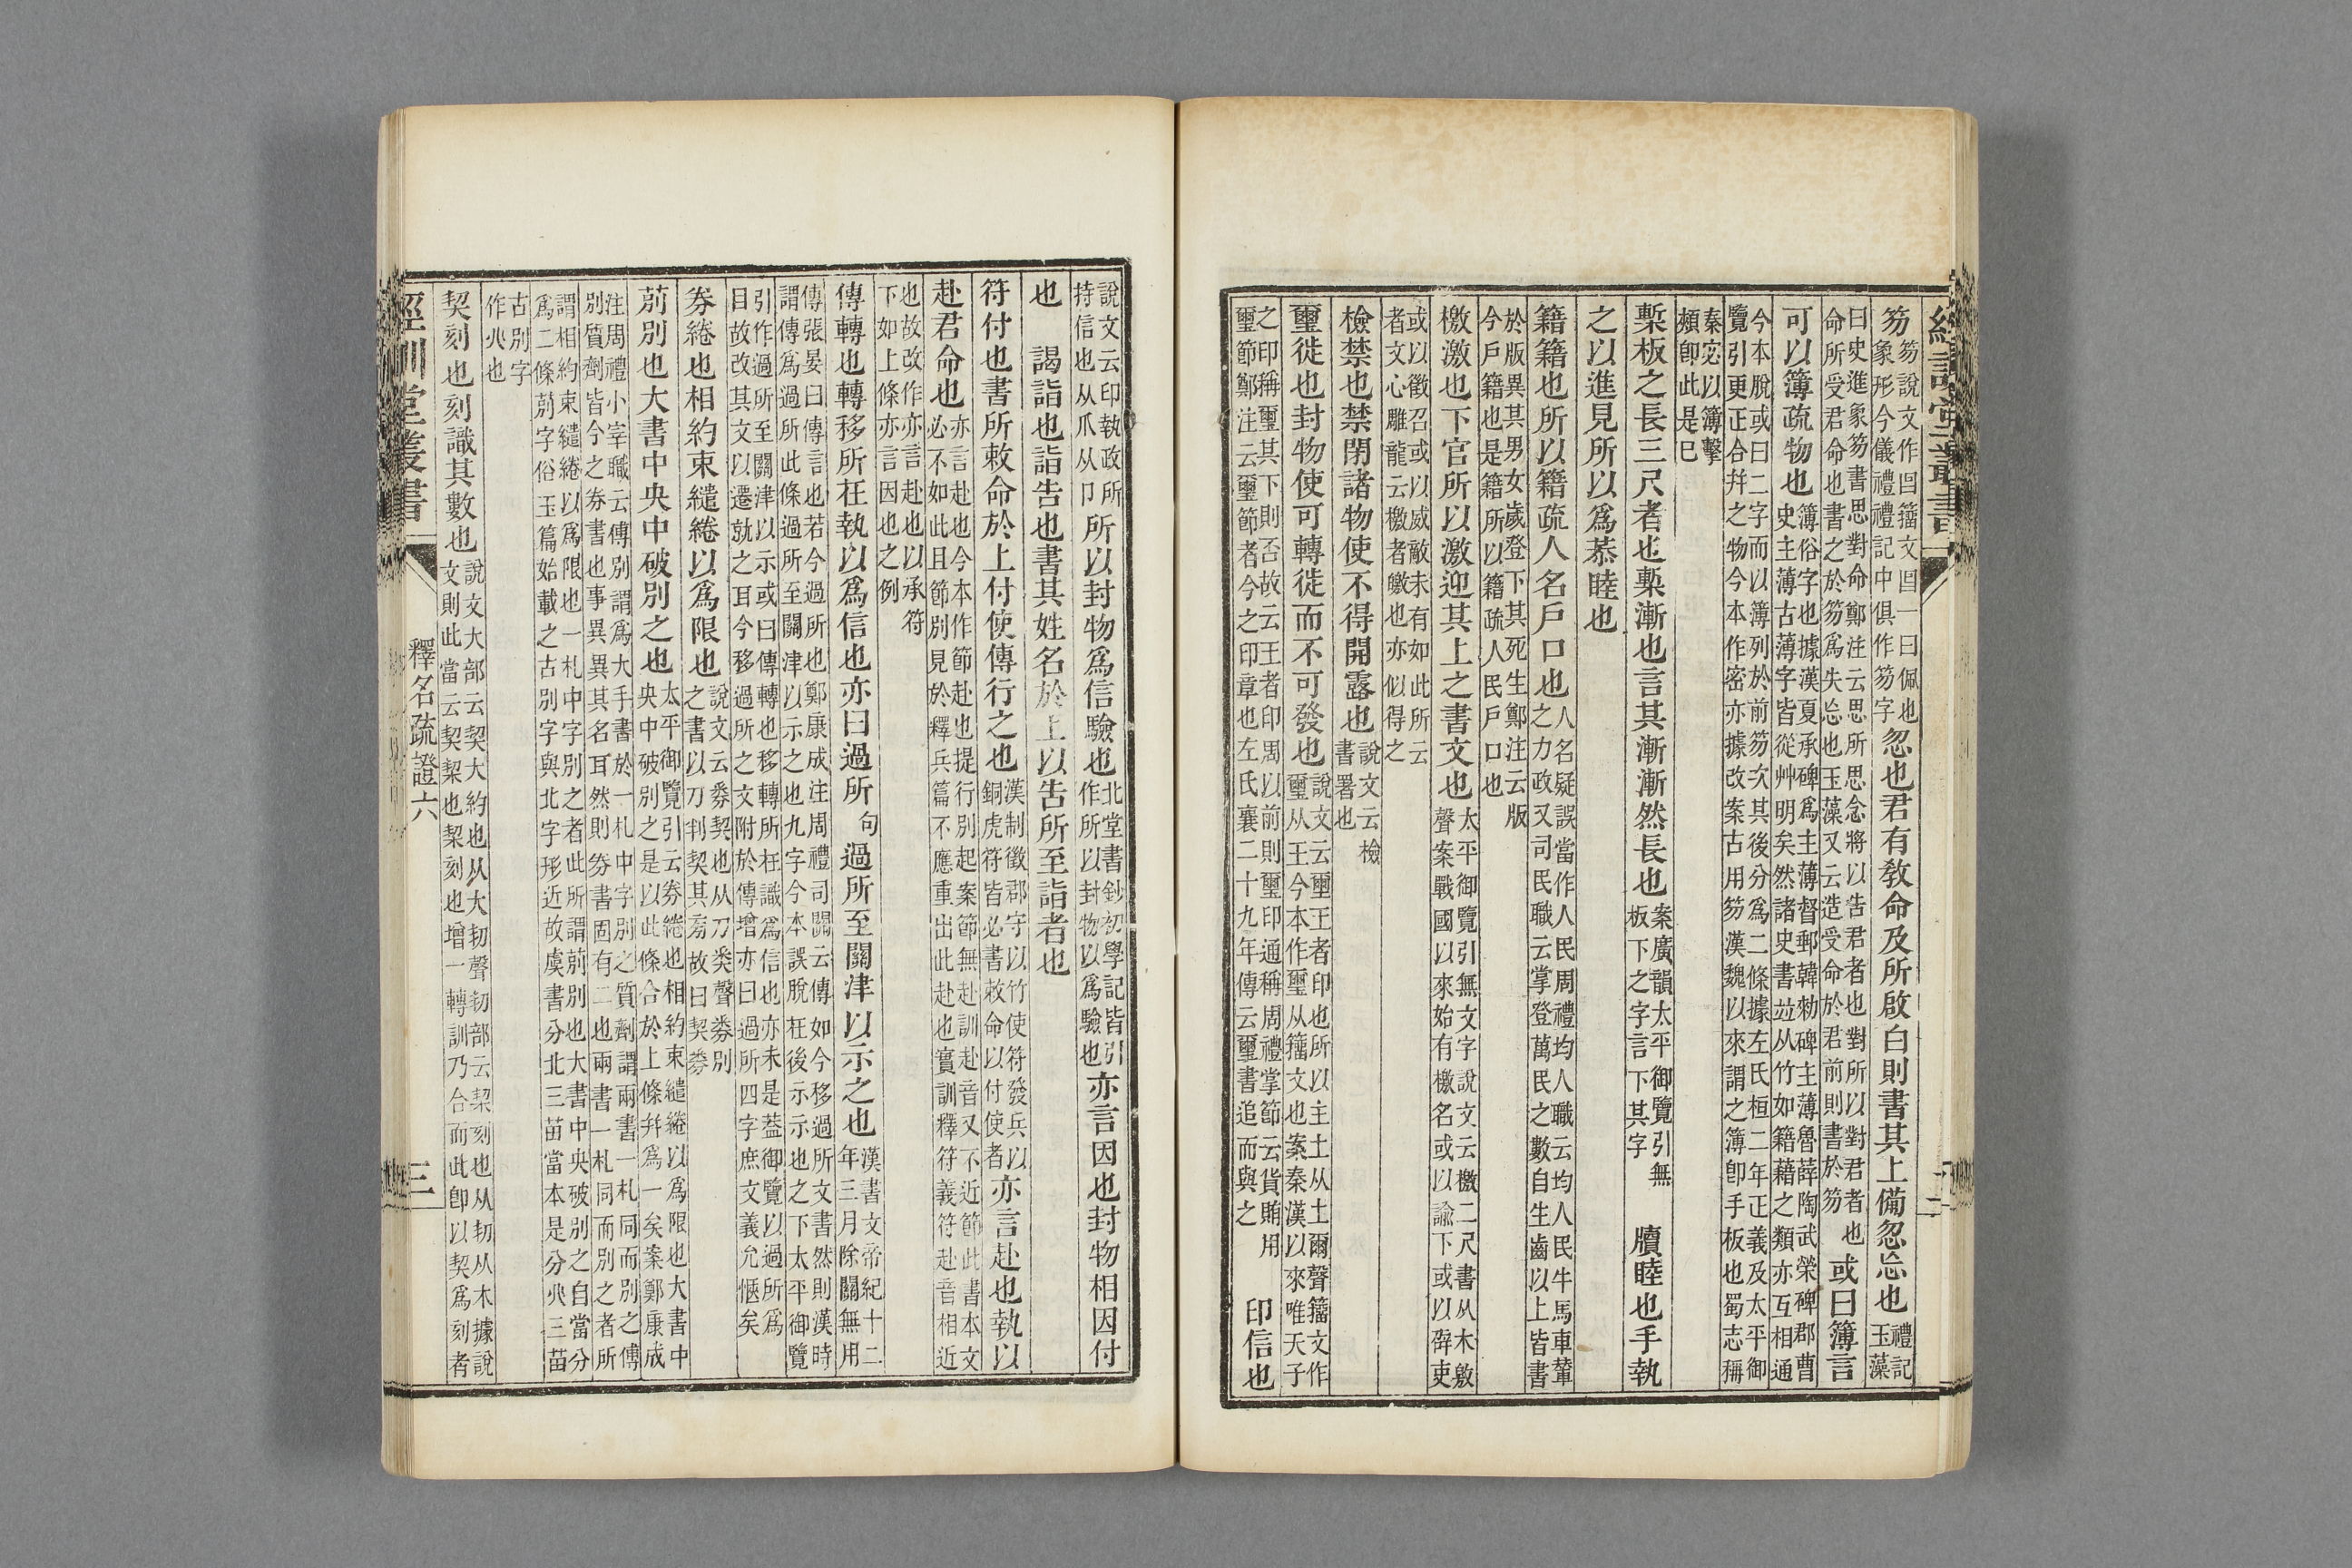 笏笏說文作𠚥籀文𠚥一曰佩也象形今儀禮禮記中俱作笏字忽也君有敎命及所啟白則書其上備忽忘也禮記玉藻
曰史進象笏書思對命鄭注云思所思念將以告君者也對所以對君者也命所受君命也書之於笏爲失忘也玉藻又云造受命於君前則書於笏或曰簿言
可以簿疏物也簿俗字也據漢夏承碑爲主薄督郵韓勑碑主薄魯薛陶武榮碑郡曹史主薄古薄字皆從艸明矣然諸史書竝从竹如籍藉之類亦互相通
今本脫或曰二字而以簿列於前笏次其後分爲二條據左氏桓二年正義及太平御覽引更正合幷之物今本作密亦據改案古用笏漢魏以來謂之簿卽手板也蜀志稱
秦宓以簿擊頰卽此是巳
槧板之長三尺者也槧漸也言其漸漸然長也案廣韻太平御覽引無板下之字言下其字 牘睦也手執
之以進見所以爲恭睦也
籍籍也所以籍疏人名戶口也人名疑誤當作人民周禮均人職云均人民牛馬車輦之力政又司民職云掌登萬民之數自生齒以上皆書
於版異其男女歲登下其死生鄭注云版今戶籍也是籍所以籍疏人民戶口也
檄激也下官所以激迎其上之書文也太平御覽引無文字說文云檄二尺書从木敫聲案戰國以來始有檄名或以諭下或以辟吏
或以徵召或以威敵未有如此所云者文心雕龍云檄者皦也亦似得之
檢禁也禁閉諸物使不得開露也說文云檢書署也
璽徙也封物使可轉徙而不可發也說文云璽王者印也所以主土从土爾聲籀文作璽从王今本作璽从籀文也案秦漢以來唯天子
之印稱璽其下則否故云王者印周以前則璽印通稱周禮掌節云貨賄用璽節鄭注云璽節者今之印章也左氏襄二十九年傳云璽書追而與之 印信也
說文云印執政所持信也从爪从卩所以封物爲信驗也北堂書鈔初學記皆引作所以封物以爲驗也亦言因也封物相因付
也 謁詣也詣告也書其姓名於上以告所至詣者也
符付也書所敕命於上付使傳行之也漢制徵郡守以竹使符發兵以銅虎符皆必書敕命以付使者亦言赴也執以
赴君命也亦言赴也今本作節赴也提行別起案節無赴訓赴音又不近節此書本文必不如此且節別見於釋兵篇不應重出此赴也實訓釋符義符赴音相近
也故改作亦言赴也以承符下如上條亦言因也之例
傳轉也轉移所在執以爲信也亦曰過所句過所至關津以示之也漢書文帝紀十二年三月除關無用
傳張晏曰傳信也若今過所也鄭康成注周禮司關云傳如今移過所文書然則漢時謂傳爲過所此條過所至關津以示之也九字今本誤脫在後示示也之下太平御覽
引作過所至關津以示或曰傳轉也移轉所在識爲信也亦未是蓋御覽以過所爲目故改其文以遷就之耳今移過所之文附於傳增亦曰過所四字庶文義允愜矣
券綣也相約束繾綣以爲限也說文云券契也从刀𢍏聲券別之書以刀判契其旁故曰契券
莂別也大書中央中破別之也太平御覽引云券綣也相約束繾綣以爲限也大書中央中破別之是以此條合於上條幷爲一矣案鄭康成
注周禮小宰職云傅別謂爲大手書於一札中字別之質劑謂兩書一札同而別之傅別質劑皆今之券書也事異異其名耳然則券書固有二也兩書一札同而別之者所
謂相約束繾綣以爲限也一札中字別之者此所謂莂別也大書中央破別之自當分爲二條莂字俗玉篇始載之古別字與北字形近故虞書分北三苗當本是分𠔁三苗
古別字作𠔁也
契刻也刻識其數也說文大部云契大約也从大㓞聲㓞部云栔刻也从㓞从木據說文則此當云契栔也栔刻也增一轉訓乃合而此卽以契爲刻者
經訓堂叢書 釋名疏證六 三